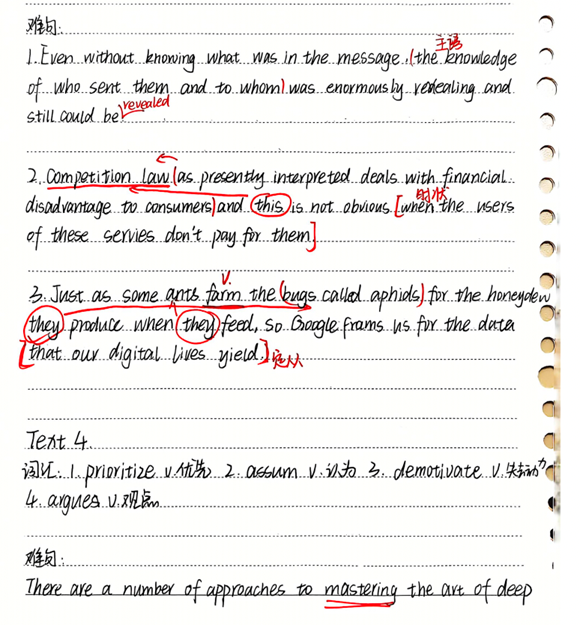 难句:
主语
1. Even without knowing what was in the message, (the knowledge
of who sent them and to whom) was enormously revealing and
still could be revealed
2. Competition law (as presently interpreted deals with financial
disadvantage to consumers) and this is not obvious [when the users
时状
of these servies don't pay for them]
v.
3. Just as some ants farm the (bugs called aphids) for the honeydew
they produce when they feed, so Google frams us for the data
[that our digital lives yield.] 定从
Text 4.
词汇: 1. prioritize v.优先 2. assum v.认为 3. demotivate v.失去动力
4. argues v.观点
难句:
There are a number of approaches to mastering the art of deep